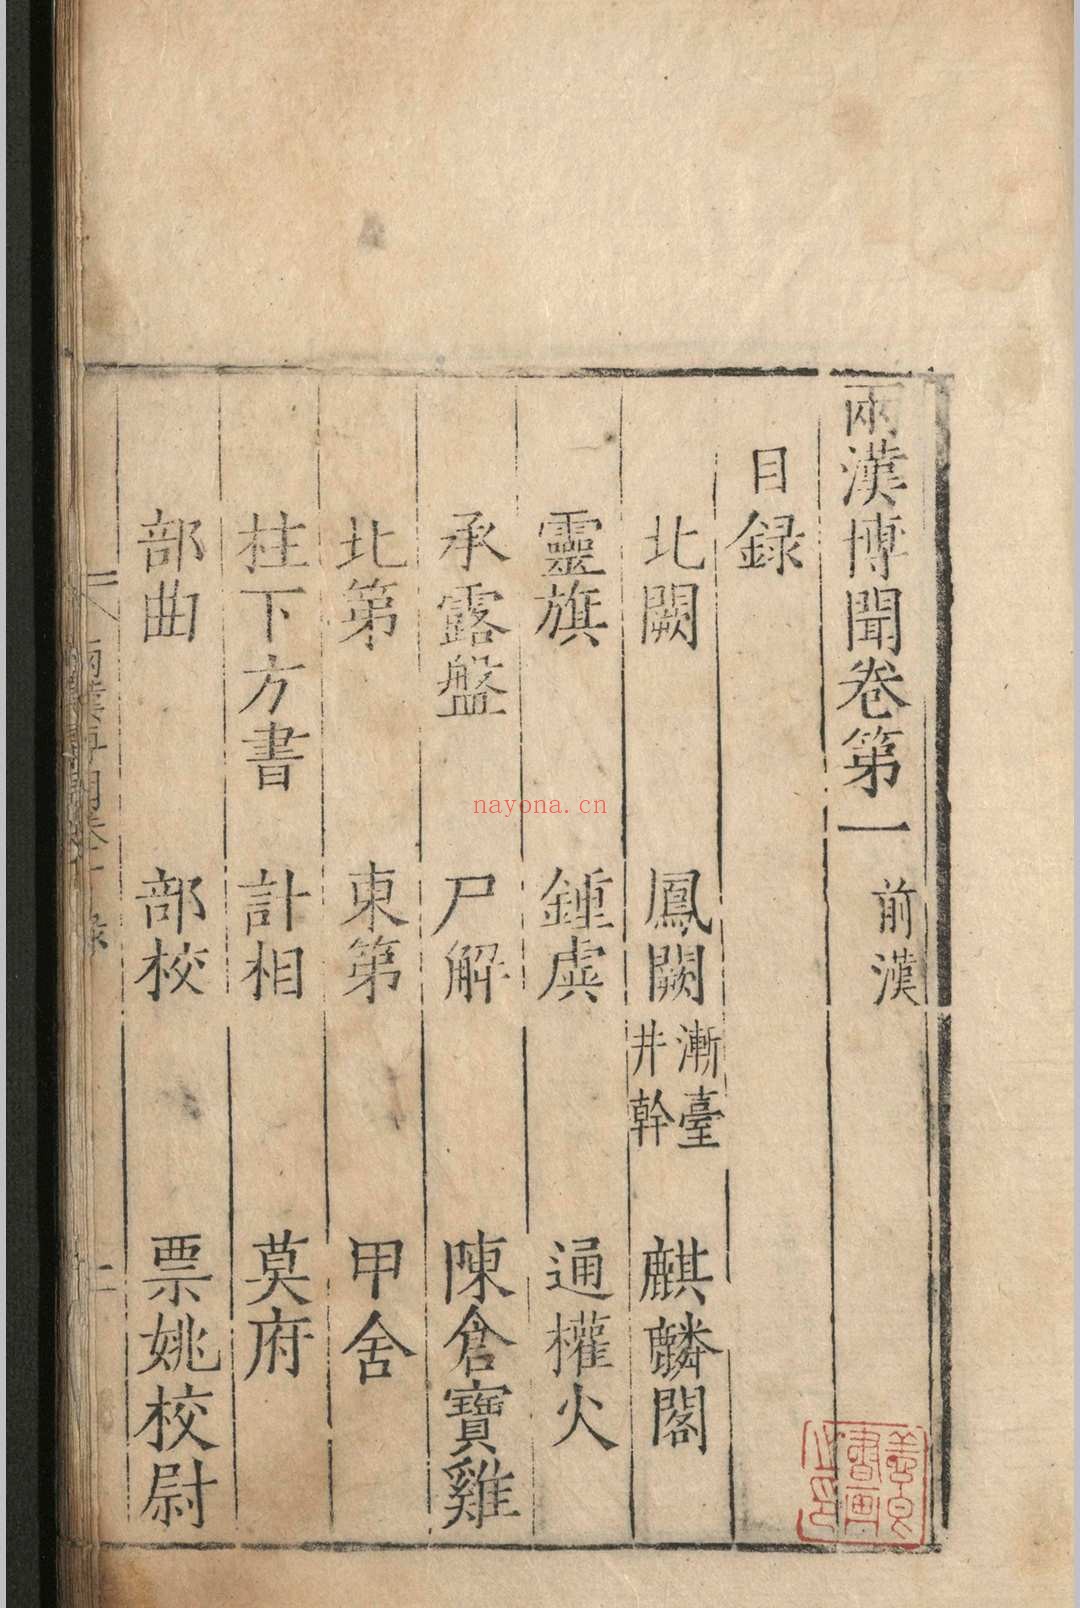 兩漢博聞卷第一 前漢
目録
北闕 鳳闕 漸臺 井幹 麒麟閣
靈旗 鍾虡 通權火
承露盤 尸解 陳倉寶雞
北第 東第 甲舍
柱下方書 計相 莫府
部曲 部校 票姚校尉
nayona.cn